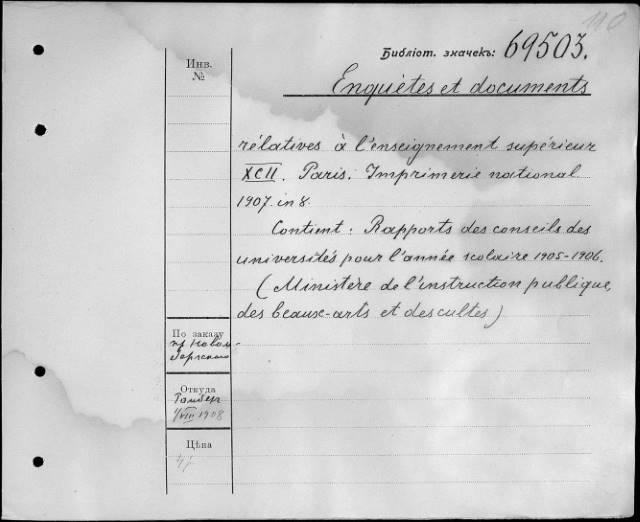 110
Библіот. значекъ: 69503.
Инв.
№
Enquêtes et documents
rélatives à l'enseignement supérieur
XCII. Paris. Imprimerie national
1907. in 8.
Contient: Rapports des conseils des
universités pour l'année scolaire 1905-1906.
(Ministère de l'instruction publique,
des beaux-arts et des cultes)
По заказу
Откуда
1/VIII 1908
Цѣна